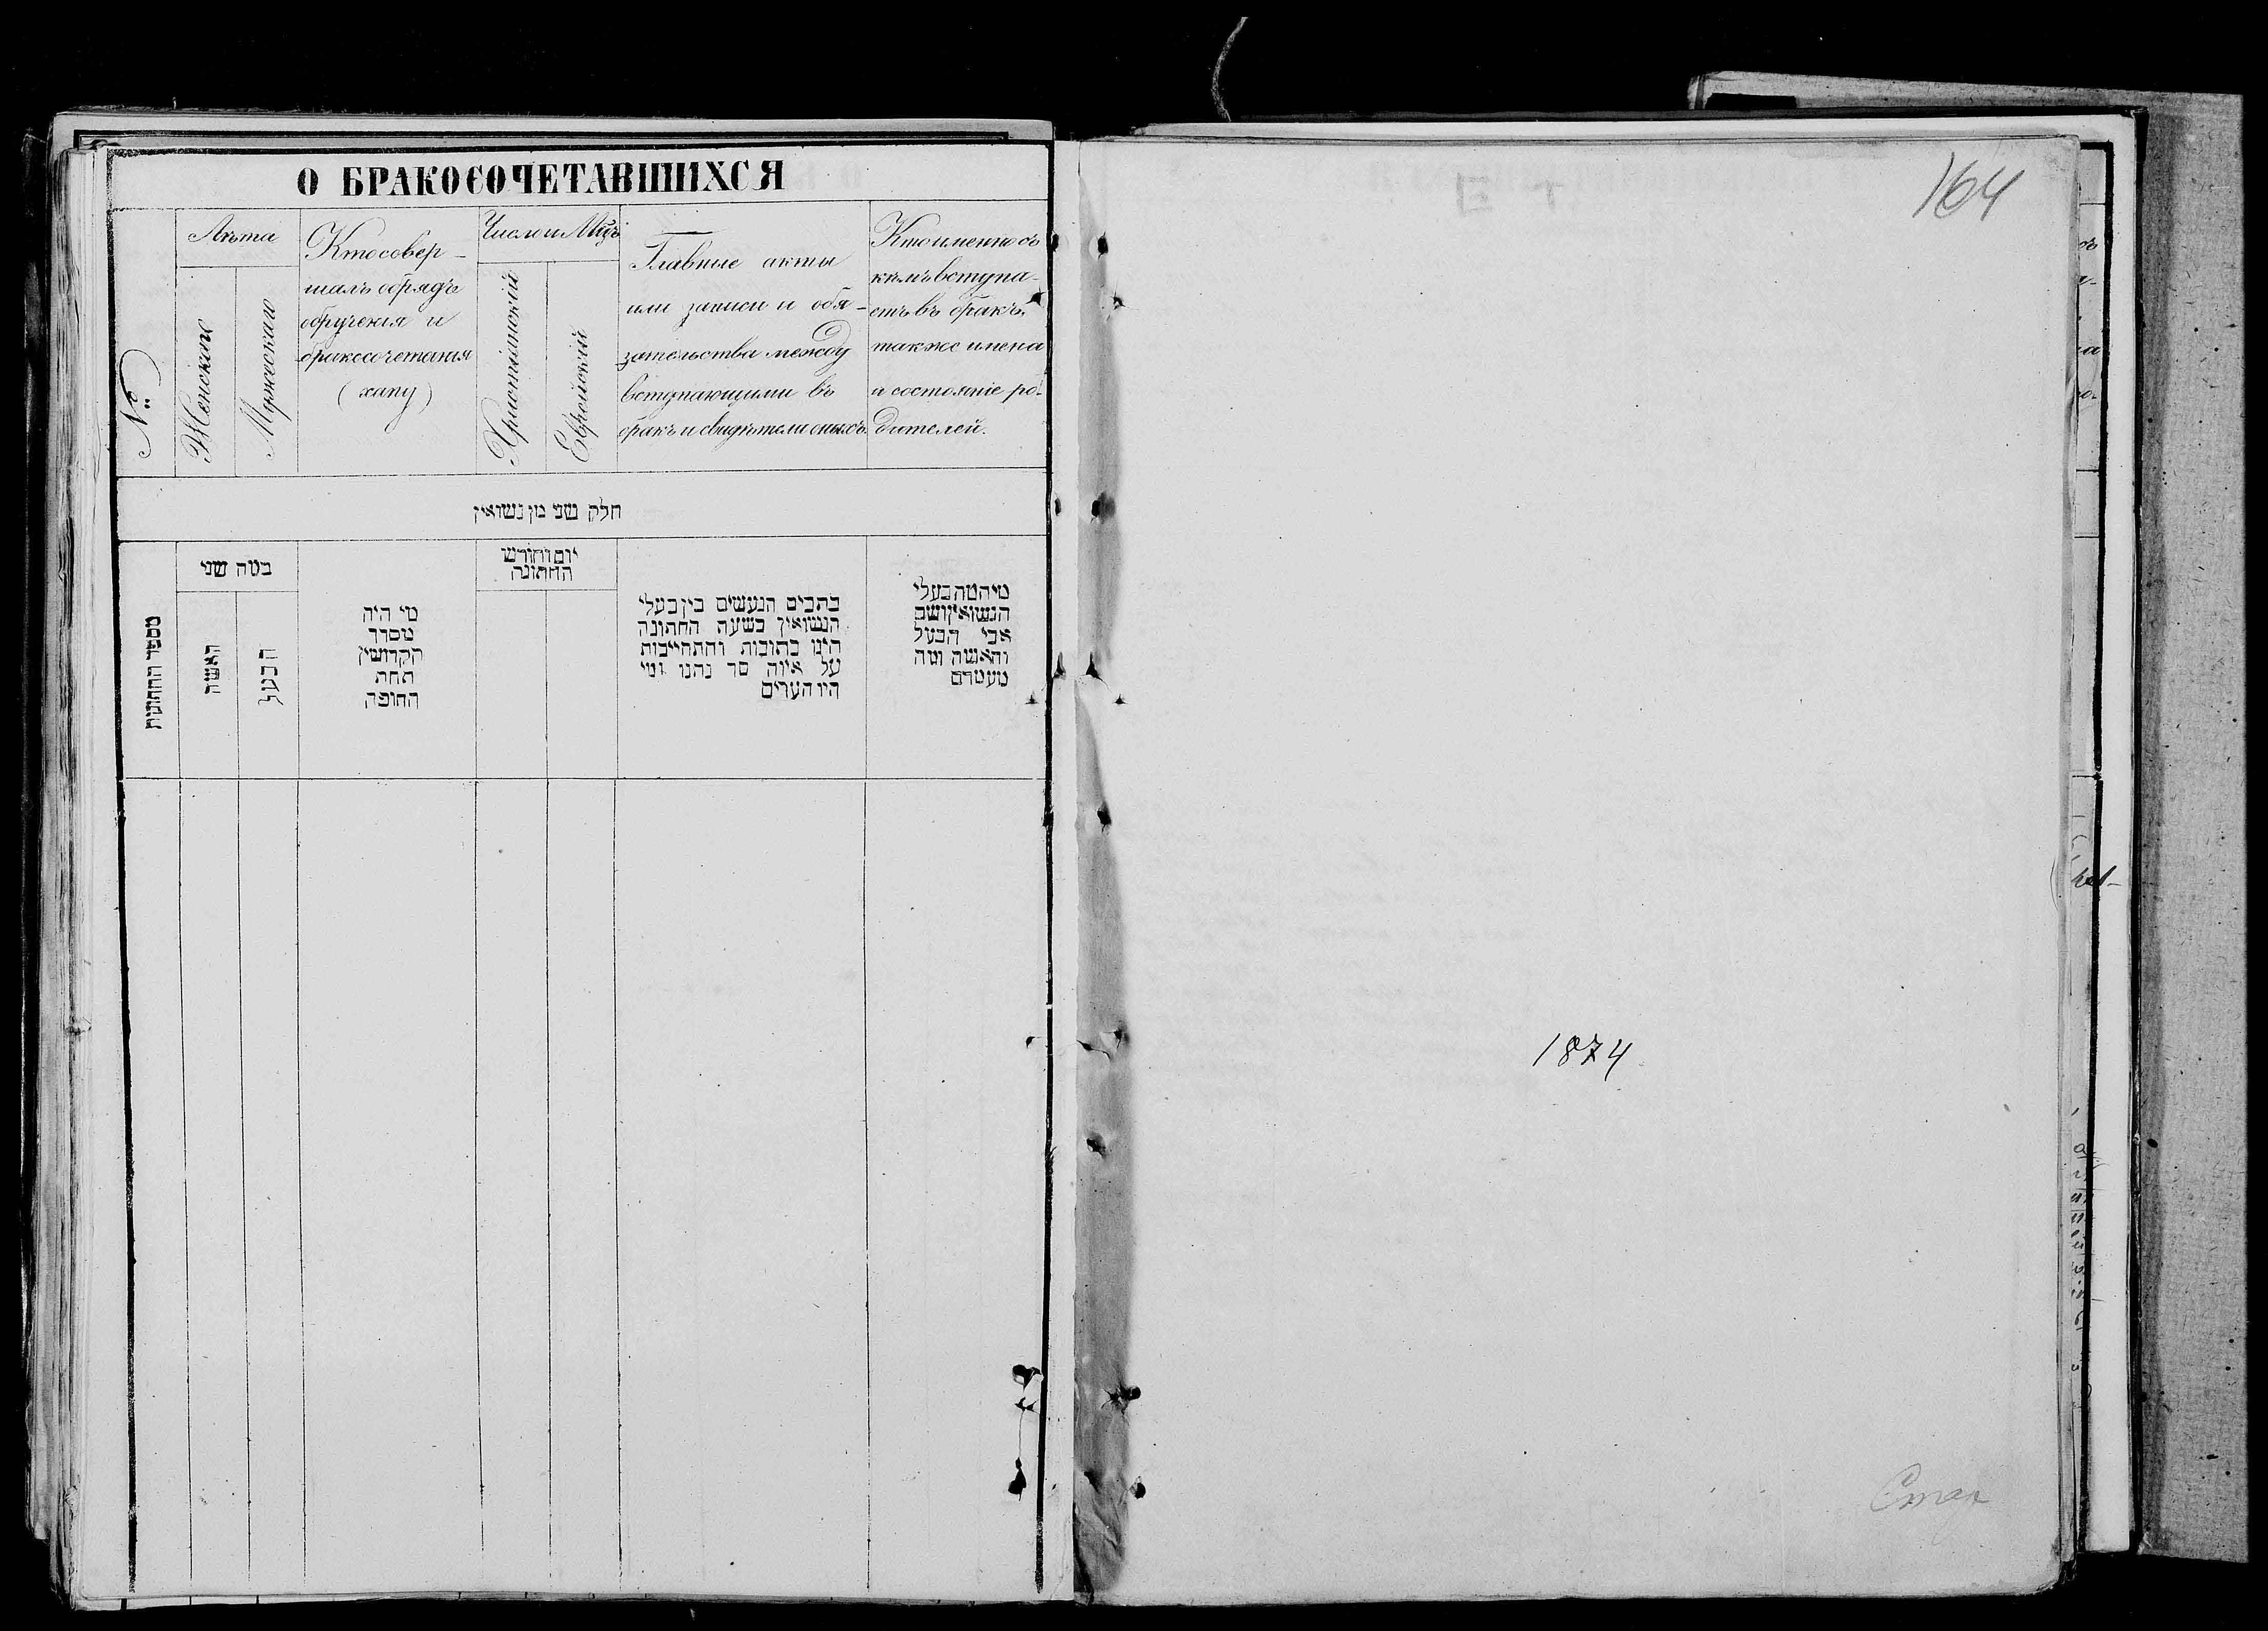 О БРАКОСОЧЕТАВШИХСЯ
№
Лѣта
Женскаго
Мужескаго
Кто совер-
шалъ обрядъ
обрученія и
бракосочетанія
(хапу)
Число и Мцъ
Христіянскій
Еврейскій
Главные акты
или записи и обя-
зательства между
вступающими въ
бракъ и свидѣтели оныхъ
Кто именно съ
кѣмъ вступа-
етъ въ бракъ,
также имена
и состояніе ро-
дителей.
חלק שני מן נשואין
מספר החתונות
במה שני
האשה
הבעל
מי היה
מסדר
הקדושין
תחת
החופה
יום וחודש
החתונה
כתבים הנעשים בין בעלי
הנשואין בשעת החתונה
היינו כתובות והתחייבות
על איזה סך נתנו ומי
היו העדים
מי המה בעלי
הנשואין ושם
אבי הבעל
והאשה ומה
מעמדם
164
1874